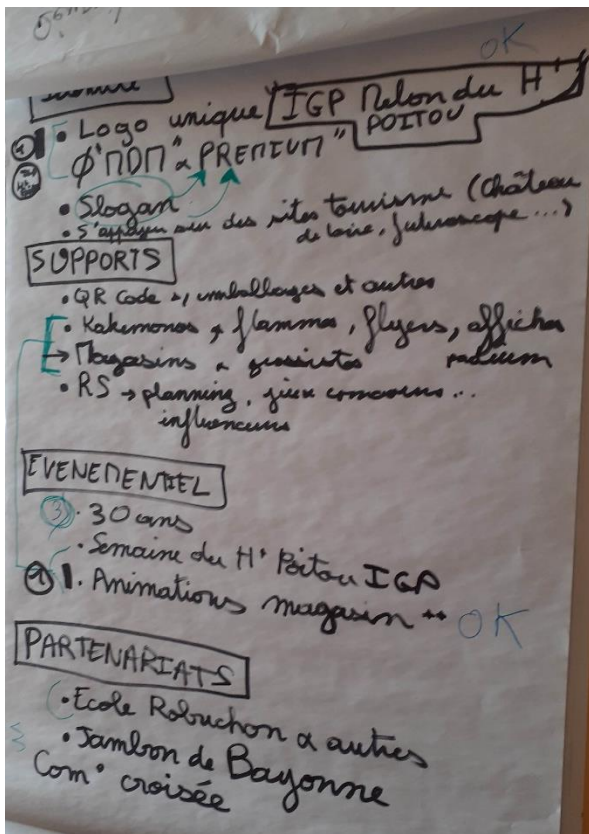 OK
• Logo unique IGP Melon du Ht
POITOU
Ø "MDM" & "PREMIUM"
• Slogan
• S'appuyer sur des sites tourisme (Château
de Loire, futuroscope...)
SUPPORTS
• QR Code →, emballages et autres
• Kakemonos → flammes, flyers, affiches
→ Magasins & grossistes medium
• RS → planning, jeux concours...
influenceurs
EVENEMENTIEL
3 • 30 ans
• Semaine du Ht Poitou IGP
1 1. Animations magasin ++ OK
PARTENARIATS
• Ecole Robuchon & autres
• Jambon de Bayonne
Com° croisée